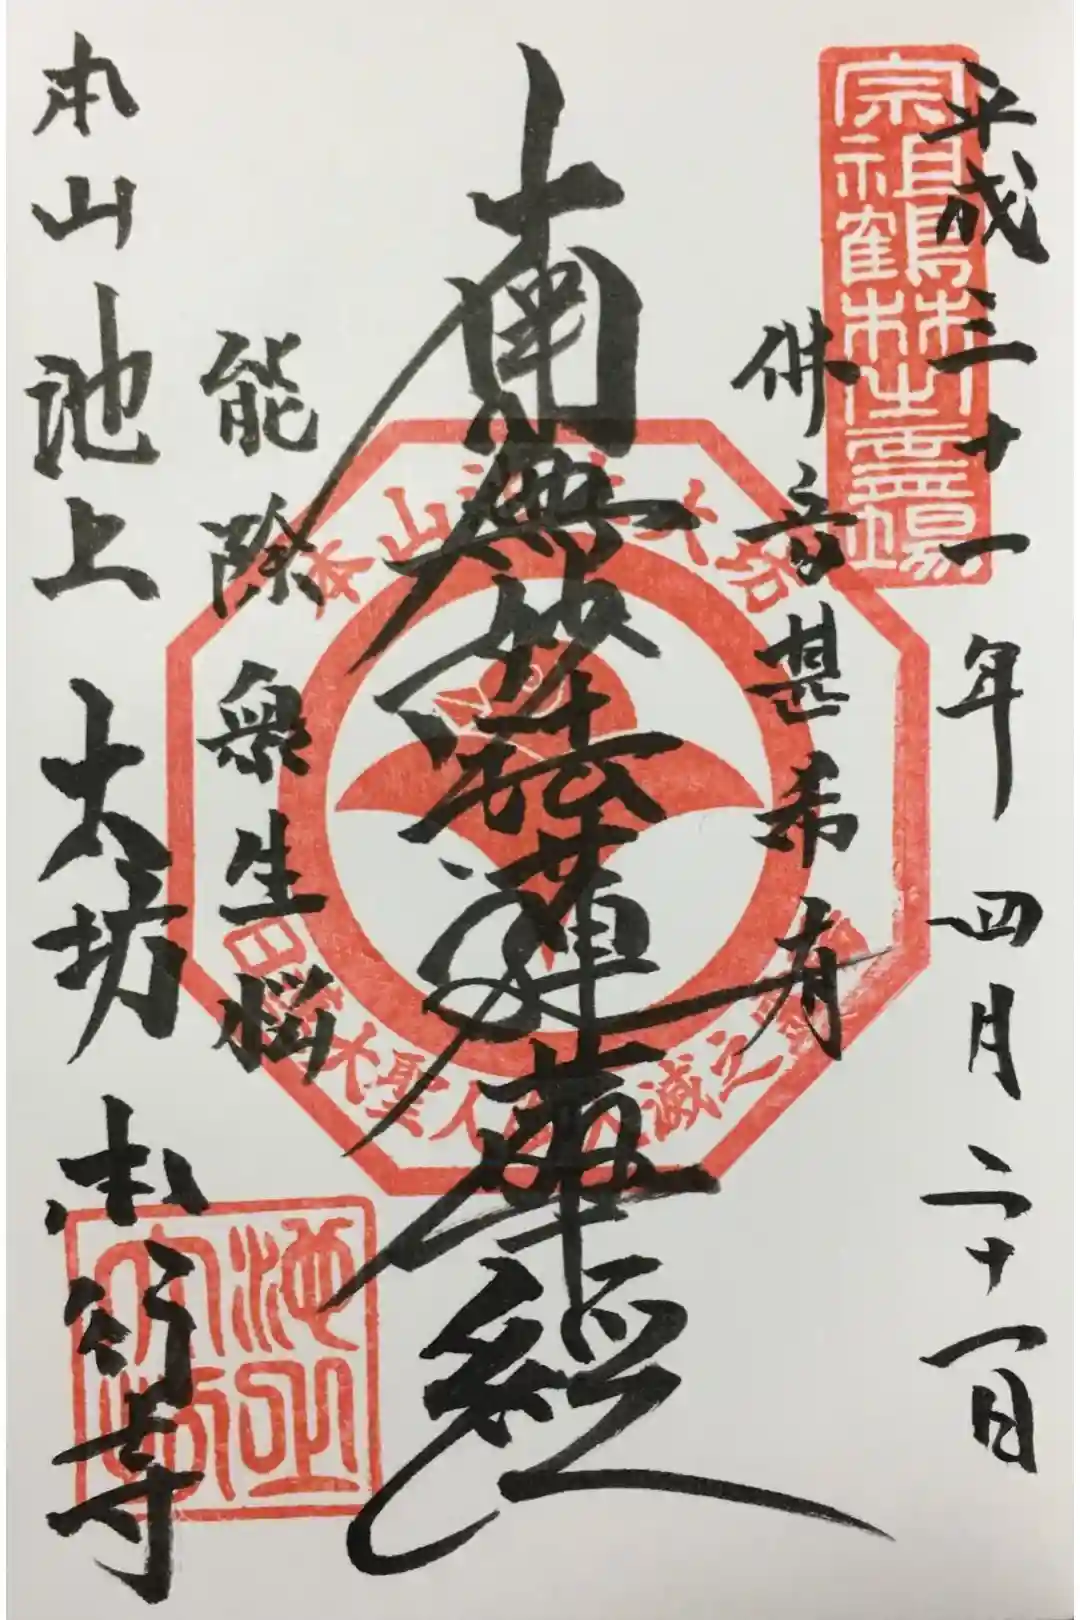 平成三十一年四月二十一日
宗祖鶴林御霊場
佛音甚希有
南無妙法蓮華經
本山池上大坊
日蓮大聖人御入滅之霊場
能除衆生悩
本山池上大坊本行寺
池上大坊